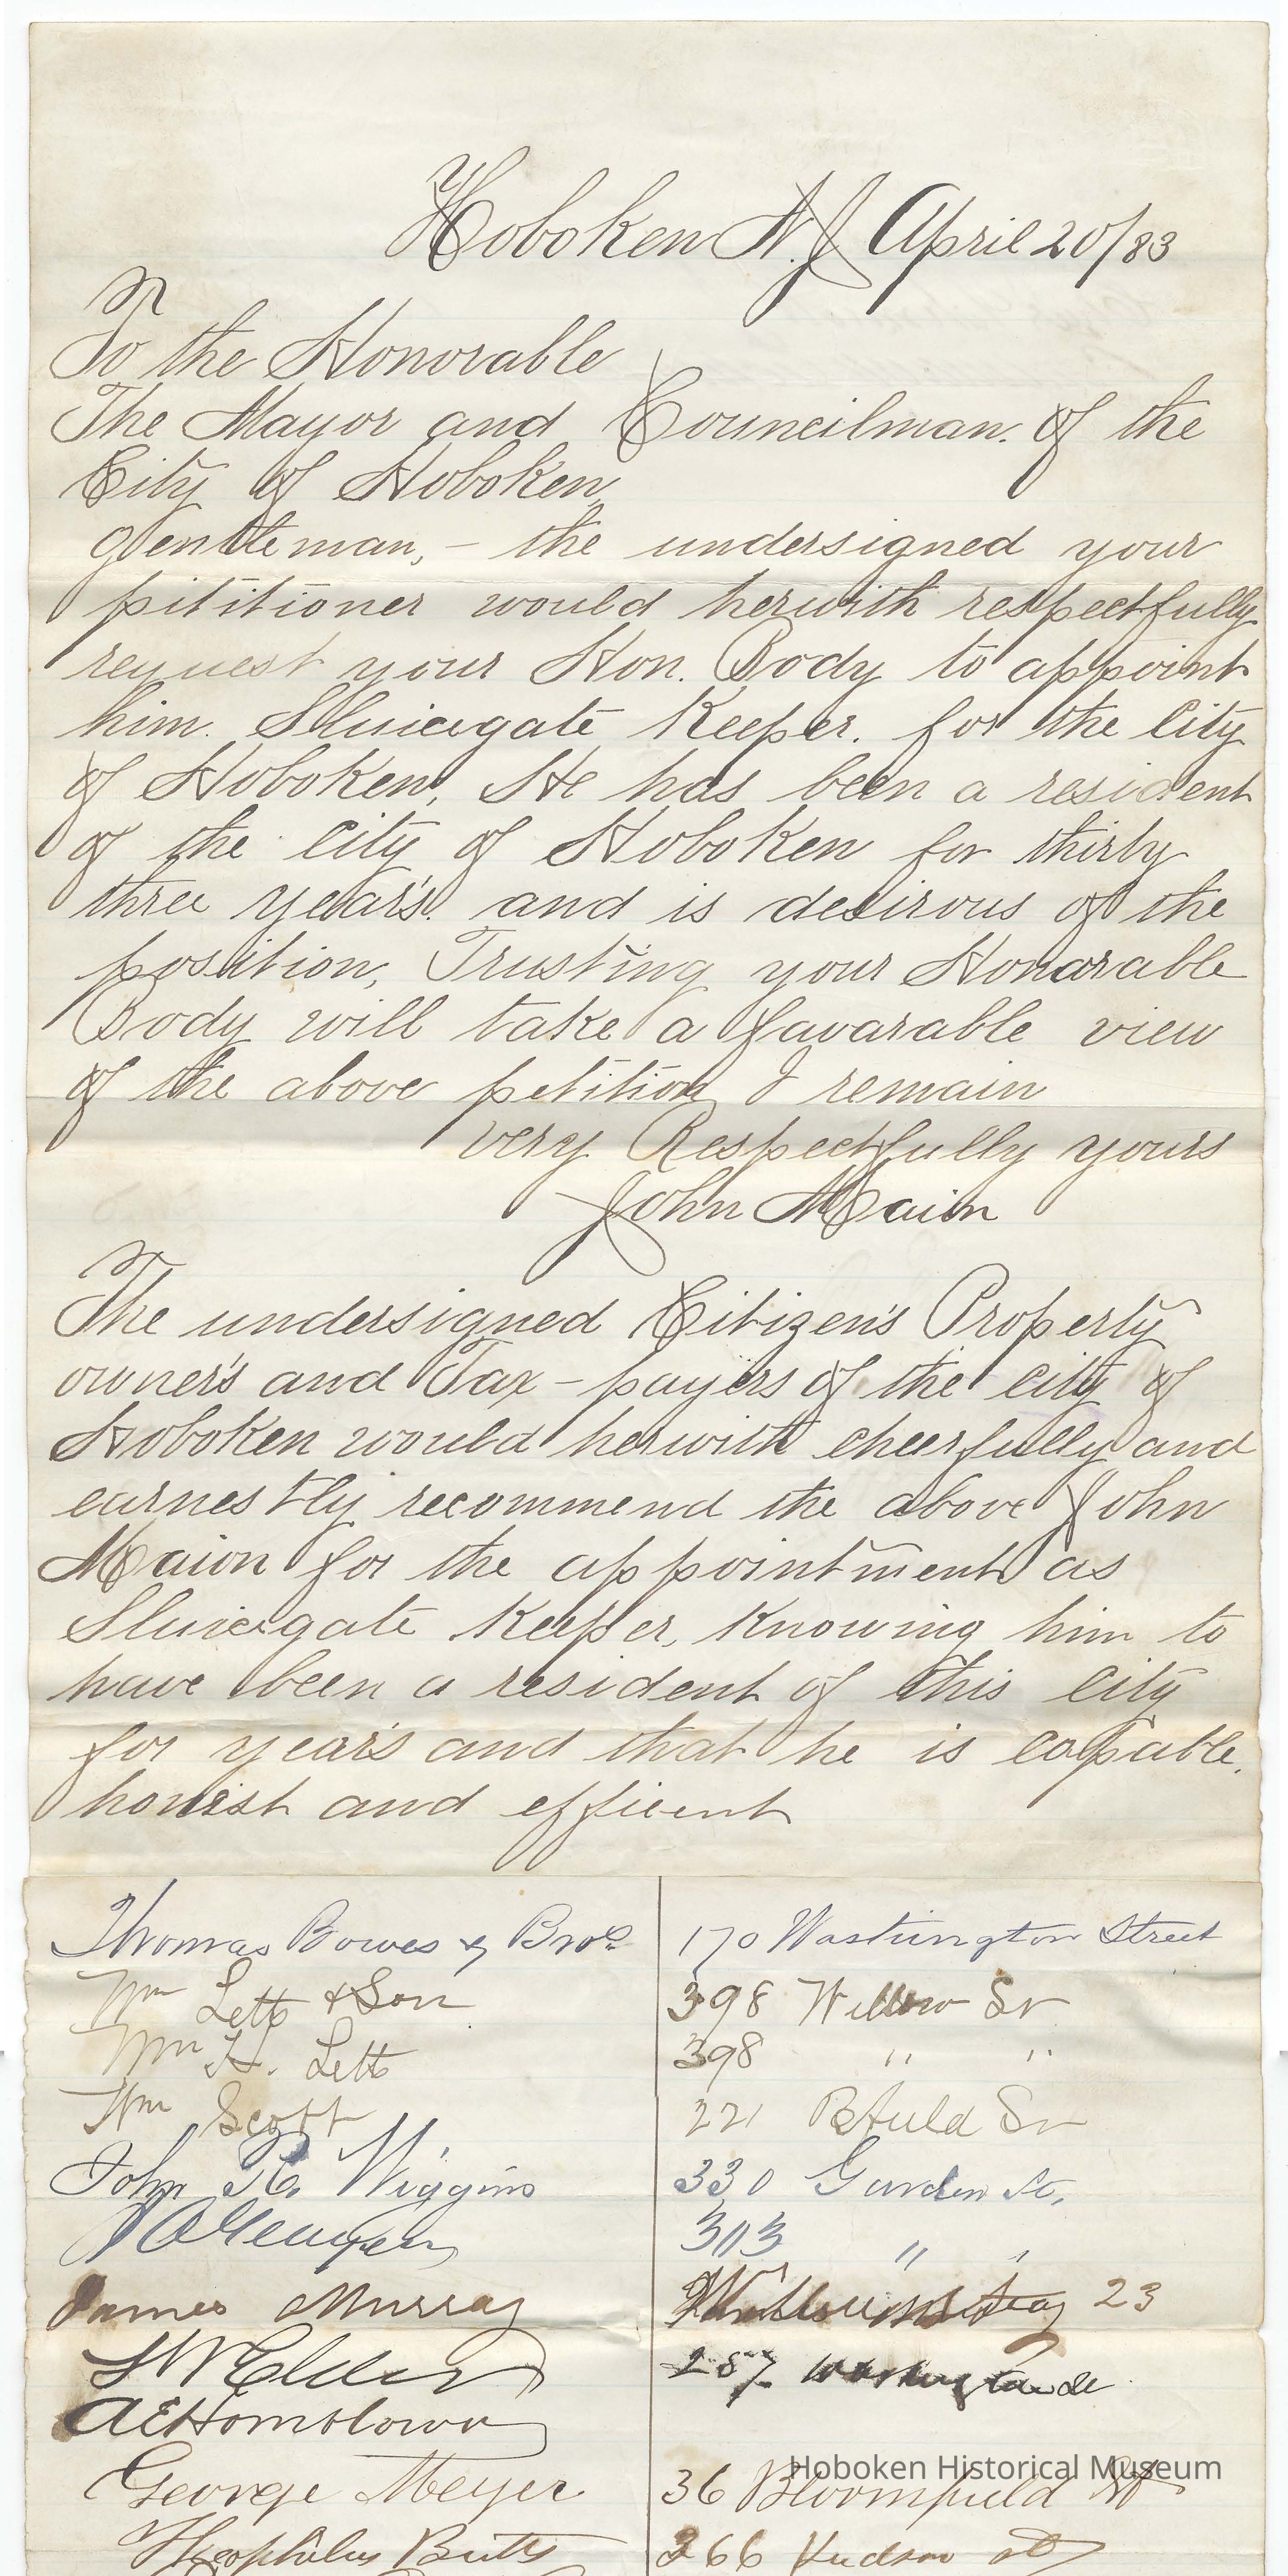 Hoboken N.J April 20/83
To the Honorable
The Mayor and Councilman. of the
City of Hoboken
gentleman, - the undersigned your
pititioner would herwith respectfully
request your Hon. Body to appoint
him. Sluicegate Keeper. for the City
of Hoboken, He has been a resident
of the City of Hoboken for thirty
three year's. and is desirous of the
position, Trusting your Honorable
Body will take a favarable view
of the above petition I remain
very Respectfully yours
John Maion
The undersigned Citizen's Property
owner's and Tax-payers of the city of
Hoboken would herwith cheerfully and
earnestly recommend the above John
Maion for the appointment as
Sluicegate Keeper, Knowing him to
have been a resident of this City
for year's and that he is capable.
honest and efficent
Thomas Bowes & Bros. 170 Washington Street
Wm Letts & Son 398 Willow St
Wm H. Letts 398 " "
Wm Scott 221
John R. Wiggins 330 Garden St.
303 " "
James Murray 23
287
George Meyer 36 Bloomfield St
Theophilus Butts 266 Hudson st
Hoboken Historical Museum